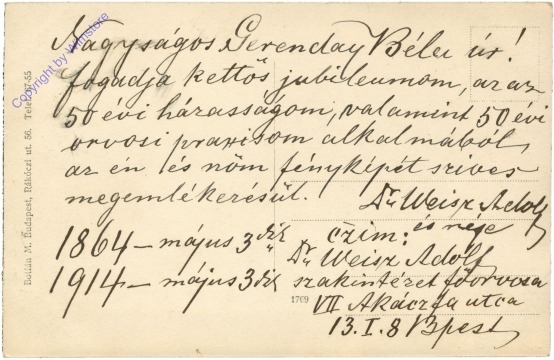 Nagyságos Gerenday Béla úr!
fogadja kettős jubileumom, az az
50 évi házasságom, valamint 50 évi
orvosi praxisom alkalmából,
az én és nöm fényképét szives
megemlékezésül.
Dr Weisz Adolf
és neje
1864 – május 3 dik
1914 – május 3 dik
Czim:
Dr Weisz Adolf
szakintézet főorvosa
VII Akáczfa utca
13. I. 8 Bpest
1769
Bottán M. Budapest, Rákóczi ut. 56. Telef. 67-55
Copyright by Wimstore